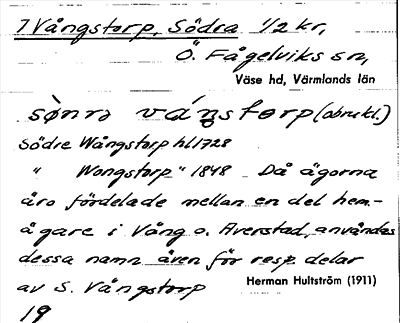 7 Vångstorp, Södra 1/2 kr,
Ö. Fågelviks sn,
Väse hd, Värmlands län
sònrə váŋstorp (obrukl.)
Södre Wångstorp hl 1728
" Wongstorp " 1848 Då ägorna
äro fördelade mellan en del hem-
ägare i Vång o. Averstad, användes
dessa namn även för resp. delar
av S. Vångstorp
Herman Hultström (1911)
19